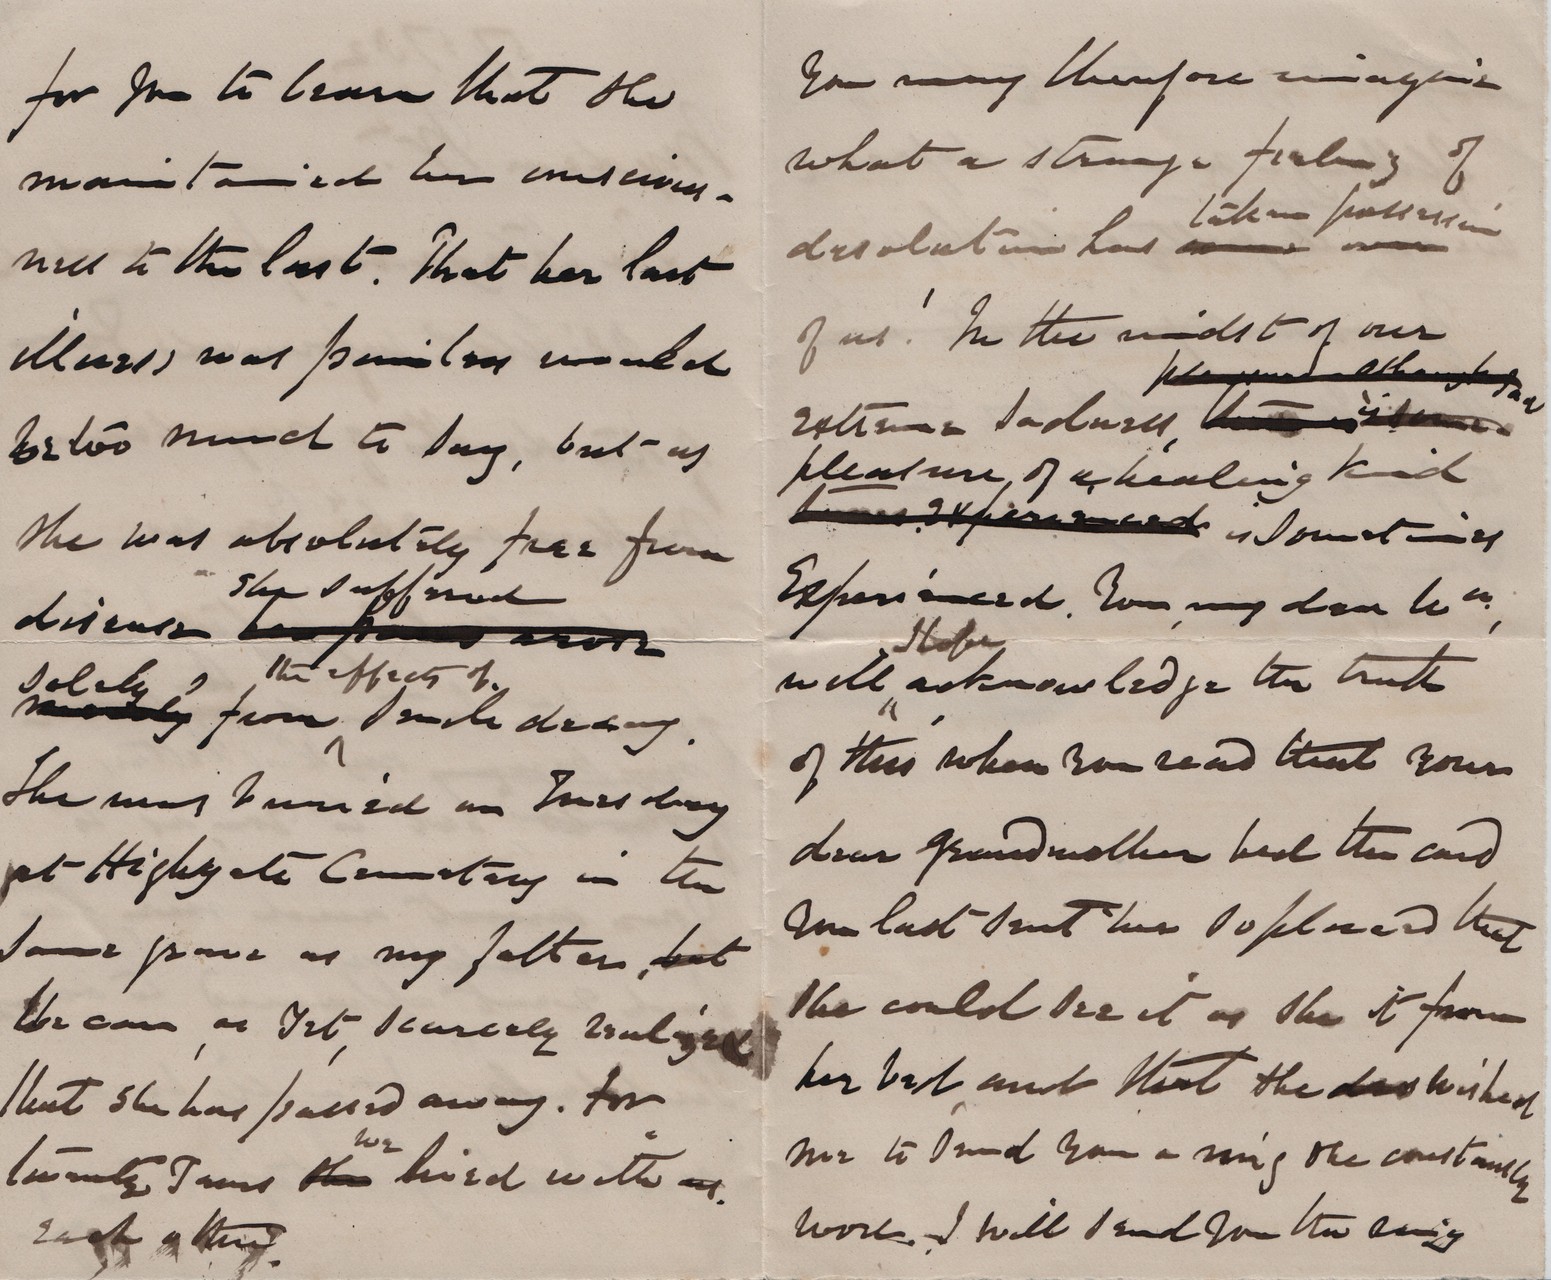 for you to learn that she
maintained her conscious-
ness to the last. That her last
illness was painless would
be too much to say, but as
she was absolutely free from
she suffered
disease her pains arose
solely the effects of
merely from senile decay.
She was buried on Tuesday
at Highgate Cemetery in the
same grave as my father, but
We can, as yet, scarcely realize
that she has passed away. For
we
twenty years she lived with us.
each other.
You may therefore imagine
what a strange feeling of
taken possession
desolation has come over
of us! In the midst of our
extreme sadness,
pleasure, of a healing kind
times experienced is sometimes
Experienced. You, my dear
I hope
will acknowledge the truth
of this when you read that your
dear grandmother had the card
you last sent her so placed that
she could see it as she it from
her bed, and that she wished
me to send you a ring she constantly
wore. I will send you the ring